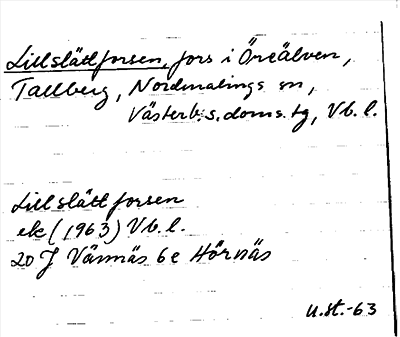 Lillslättforsen, fors i Öreälven,
Tallberg, Nordmalings sn,
Västerb:s. doms. tg, Vb. l.
Lillslättforsen
ek (1963) Vb. l.
20 J Vännäs 6e Hörnäs
u.st.-63